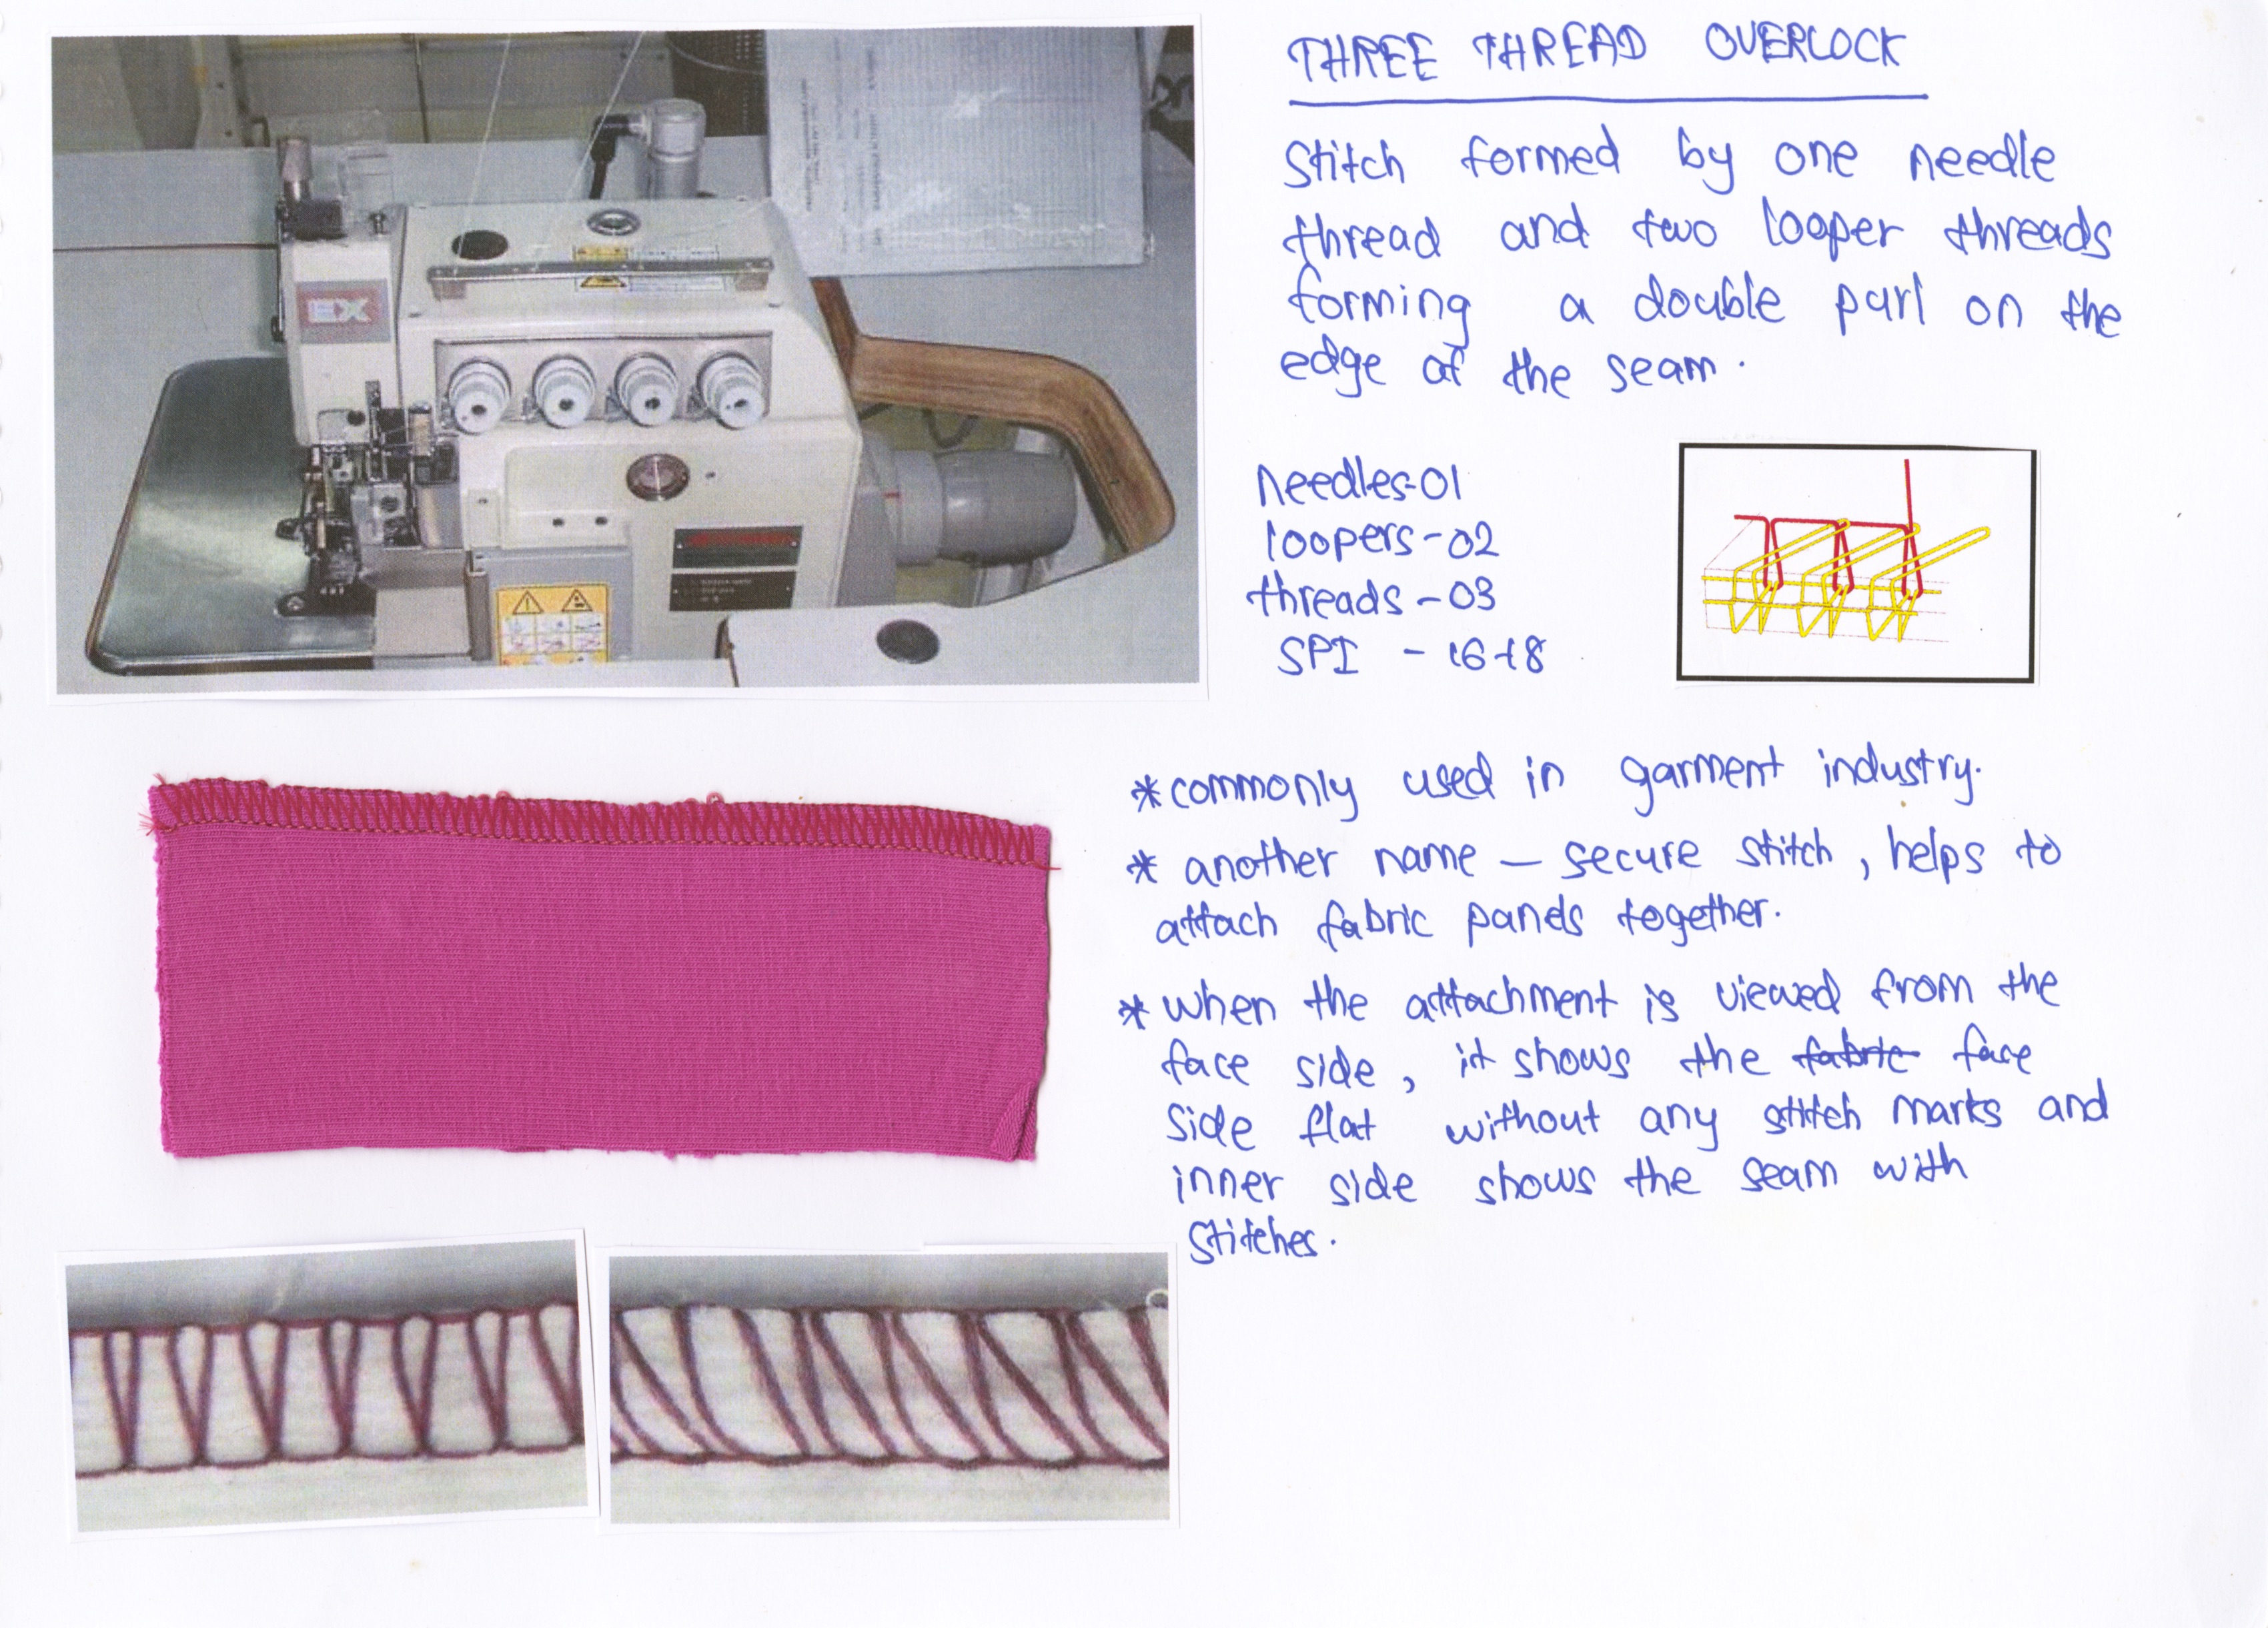 THREE THREAD OVERLOCK
Stitch formed by one needle
thread and two looper threads
forming a double purl on the
edge of the seam.
needles-01
loopers-02
threads-03
SPI - 16-18
*commonly used in garment industry.
* another name — secure stitch, helps to
attach fabric panels together.
* when the attachment is viewed from the
face side, it shows the fabric face
side flat without any stitch marks and
inner side shows the seam with
stitches.
EX